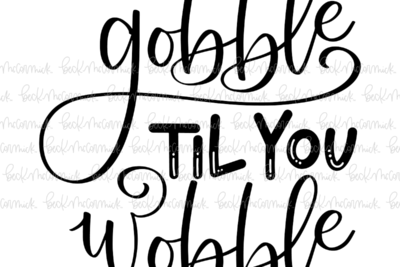 gobble
TIL YOU
Wobble